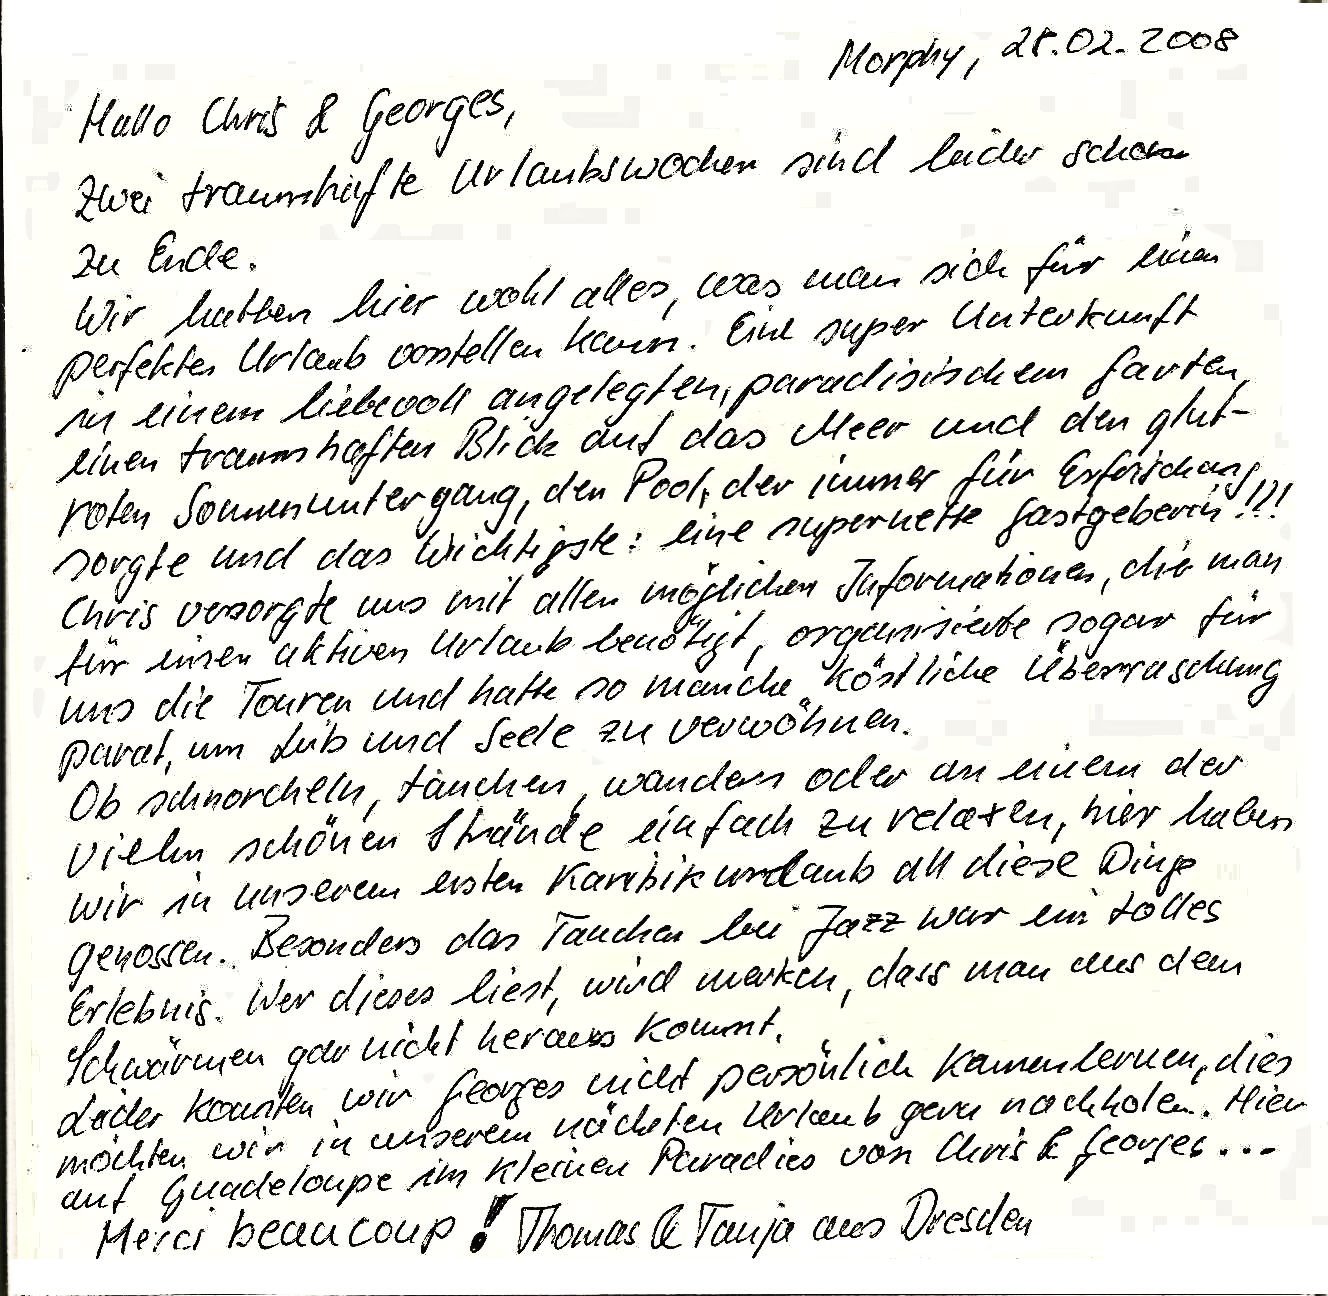 Morphy, 28.02.2008
Hallo Chris & Georges,
zwei traumhafte Urlaubswochen sind leider schon
zu Ende.
Wir hatten hier wohl alles, was man sich für einen
perfekten Urlaub vorstellen kann. Eine super Unterkunft
in einem liebevoll angelegten, paradisischem Garten,
einen traumhaften Blick auf das Meer und den glut-
roten Sonnenuntergang, den Pool, der immer für Erfrischung
sorgte und das Wichtigste: eine supernette Gastgeberin!!!
Chris versorgte uns mit allen möglichen Informationen, die man
für einen aktiven Urlaub benötigt, organisierte sogar für
uns die Touren und hatte so manche köstliche Überraschung
parat, um Leib und Seele zu verwöhnen.
Ob schnorcheln, tauchen, wandern oder an einem der
vielen schönen Strände einfach zu relaxen, hier haben
wir in unserem ersten Karibikurlaub all diese Dinge
genossen. Besonders das Tauchen bei Jazz war ein tolles
Erlebnis. Wer dieses liest, wird merken, dass man aus dem
Schwärmen gar nicht heraus kommt.
Leider konnten wir Georges nicht persönlich kennenlernen, dies
möchten wir in unserem nächsten Urlaub gern nachholen. Hier
auf Guadeloupe im kleinen Paradies von Chris & Georges...
Merci beaucoup! Thomas & Tanja aus Dresden